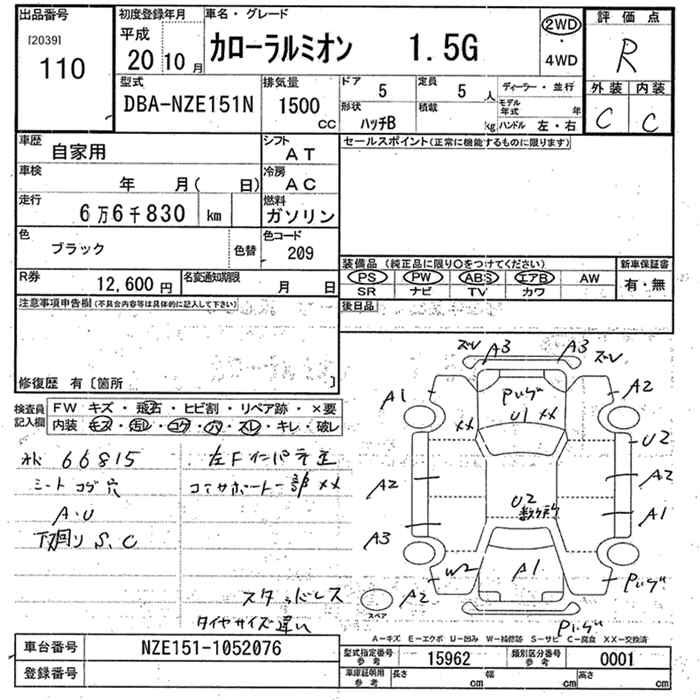 出品番号
[2039]
110
初度登録年月
平成
20 10 月
車名・グレード
カローラルミオン 1.5G
2WD
・
4WD
評価点
R
外装 内装
C C
型式
DBA-NZE151N
排気量
1500
CC
ドア
5
定員
5 人
形状
ハッチB
積載
kg
ディーラー・並行
モデル年式 年
ハンドル 左・右
車歴
自家用
シフト
AT
車検
年 月( 日)
冷房
AC
走行
6万6千830 km
燃料
ガソリン
色
ブラック
色替
色コード
209
R券
12,600 円
名変通知期限
月 日
セールスポイント(正常に機能するものに限ります)
装備品 (純正品に限り○をつけてください)
PS PW ABS エアB AW
SR ナビ TV カワ
新車保証書
有・無
後日品
注意事項申告欄(不具合内容等は具体的に記入して下さい)
修復歴 有〔箇所 〕
検査員記入欄
FW キズ・飛石・ヒビ割・リペア跡・×要
内装 キズ・汚レ・コゲ・穴・スレ・キレ・破レ
66815
シートコゲ穴
A.U
下回りS.C
左Fインパネ主
コアサポート一部××
スタッドレス
タイヤサイズ違い
ズレ A3 A3 ズレ
A1
Pいげ
U1 ××
××
A2
U2
A2
A2
U2
A1
A3
W2
A1
Pいげ
A2
スペア
Pいげ
A-キズ E-エクボ U-凹み W-補修跡 S-サビ C-腐食 XX-交換済
車台番号
NZE151-1052076
登録番号
型式指定番号
参考
15962
類別区分番号
参考
0001
車庫証明用
参考
長さ cm
幅 cm
高さ cm